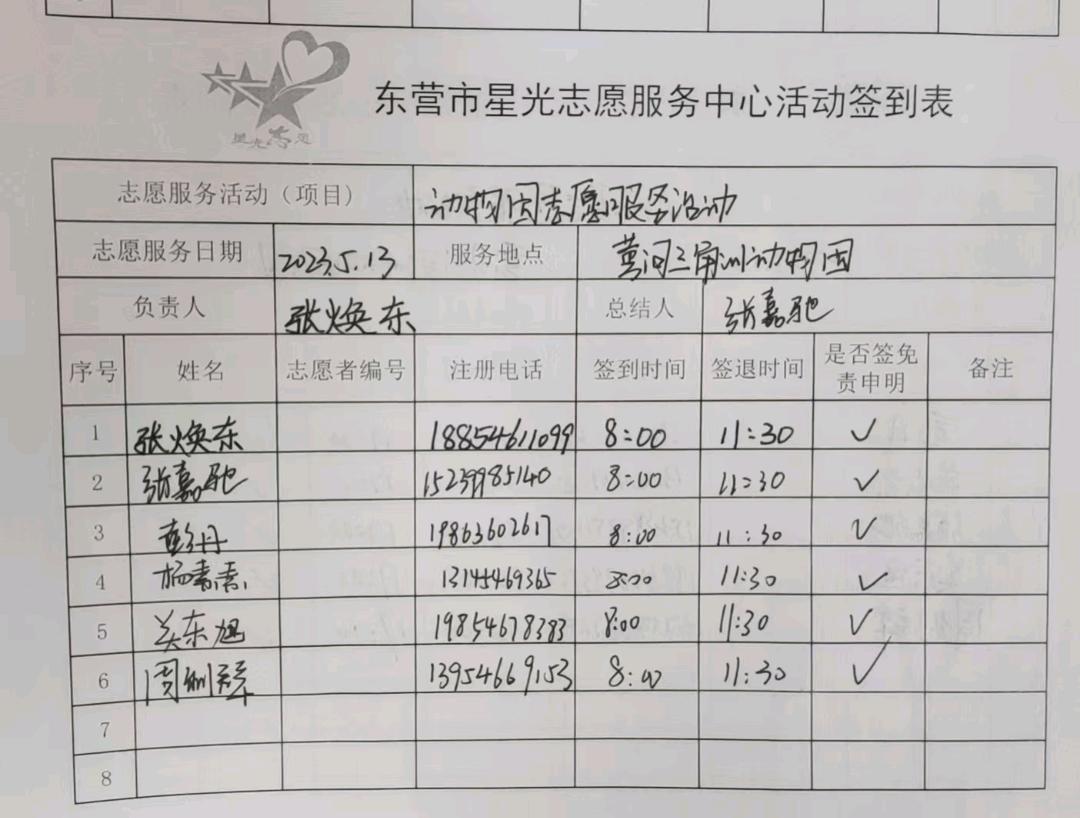 星光志愿
东营市星光志愿服务中心活动签到表
志愿服务活动（项目） 动物园志愿服务活动
志愿服务日期 2023.5.13 服务地点 黄河三角洲动物园
负责人 张焕东 总结人 张嘉驰
序号 姓名 志愿者编号 注册电话 签到时间 签退时间 是否签免责申明 备注
1 张焕东 18854611099 8:00 11:30 ✓
2 张嘉驰 15239985140 8:00 11:30 ✓
3 彭丹 19863602617 8:00 11:30 ✓
4 杨素素 13145469365 8:00 11:30 ✓
5 关东旭 19854678383 8:00 11:30 ✓
6 周 13954669153 8:00 11:30 ✓
7
8